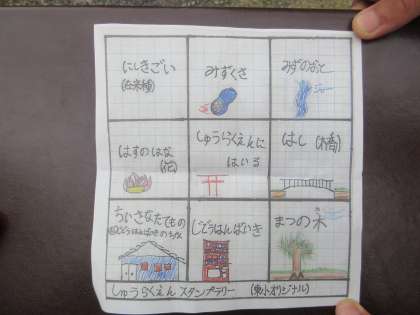 にしきごい
(在来種)
みずくさ
みずのおと
はすのはな
(花)
しゅうらくえんに
はいる
はし(橋)
ちいさなたてもの
じどうはんばいき
まつの木
しゅうらくえん スタンプラリー (東小オリジナル)